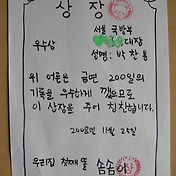 상장
서울 국방부
우수상
대장
성명: 박찬용
위 어른은 금연 200일의
기록을 우수하게 깼으므로
이 상장을 주어 칭찬합니다.
2008년 11월 25일
우리집 첫째 딸